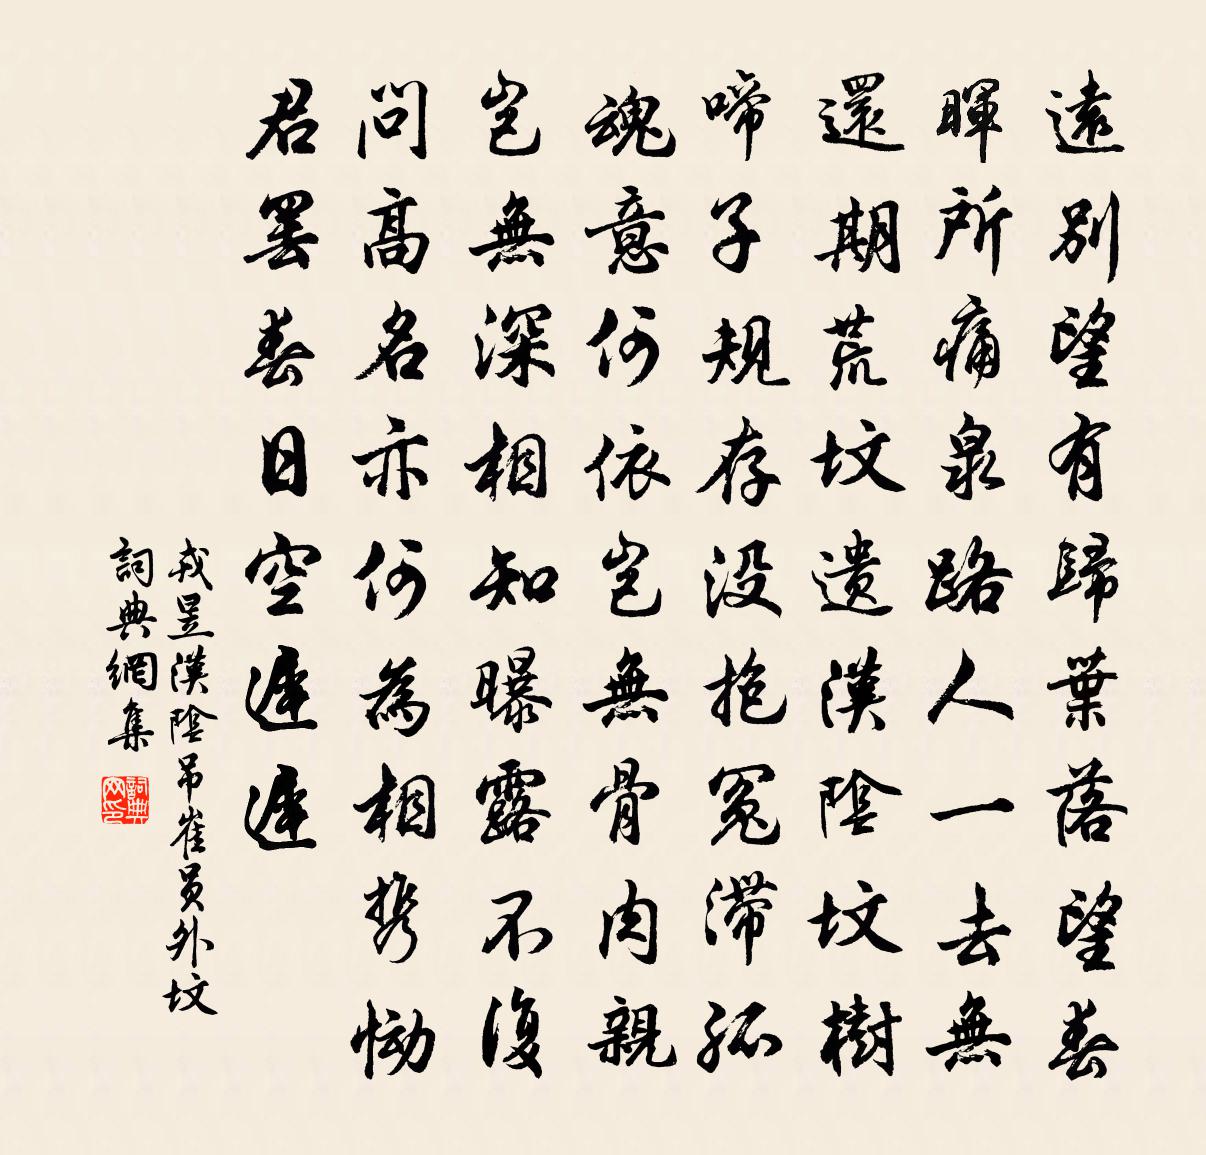 遠別望有歸葉落望春
暉所痛泉路人一去無
還期荒坟遺漢陰坟樹
啼子規存没抱冤滯孤
魂意何依豈無骨肉親
豈無深相知曝露不復
問高名亦何為相携慟
君罢春日空遲遲
戎昱漢陰吊崔員外坟
詞典網集
詞典网印